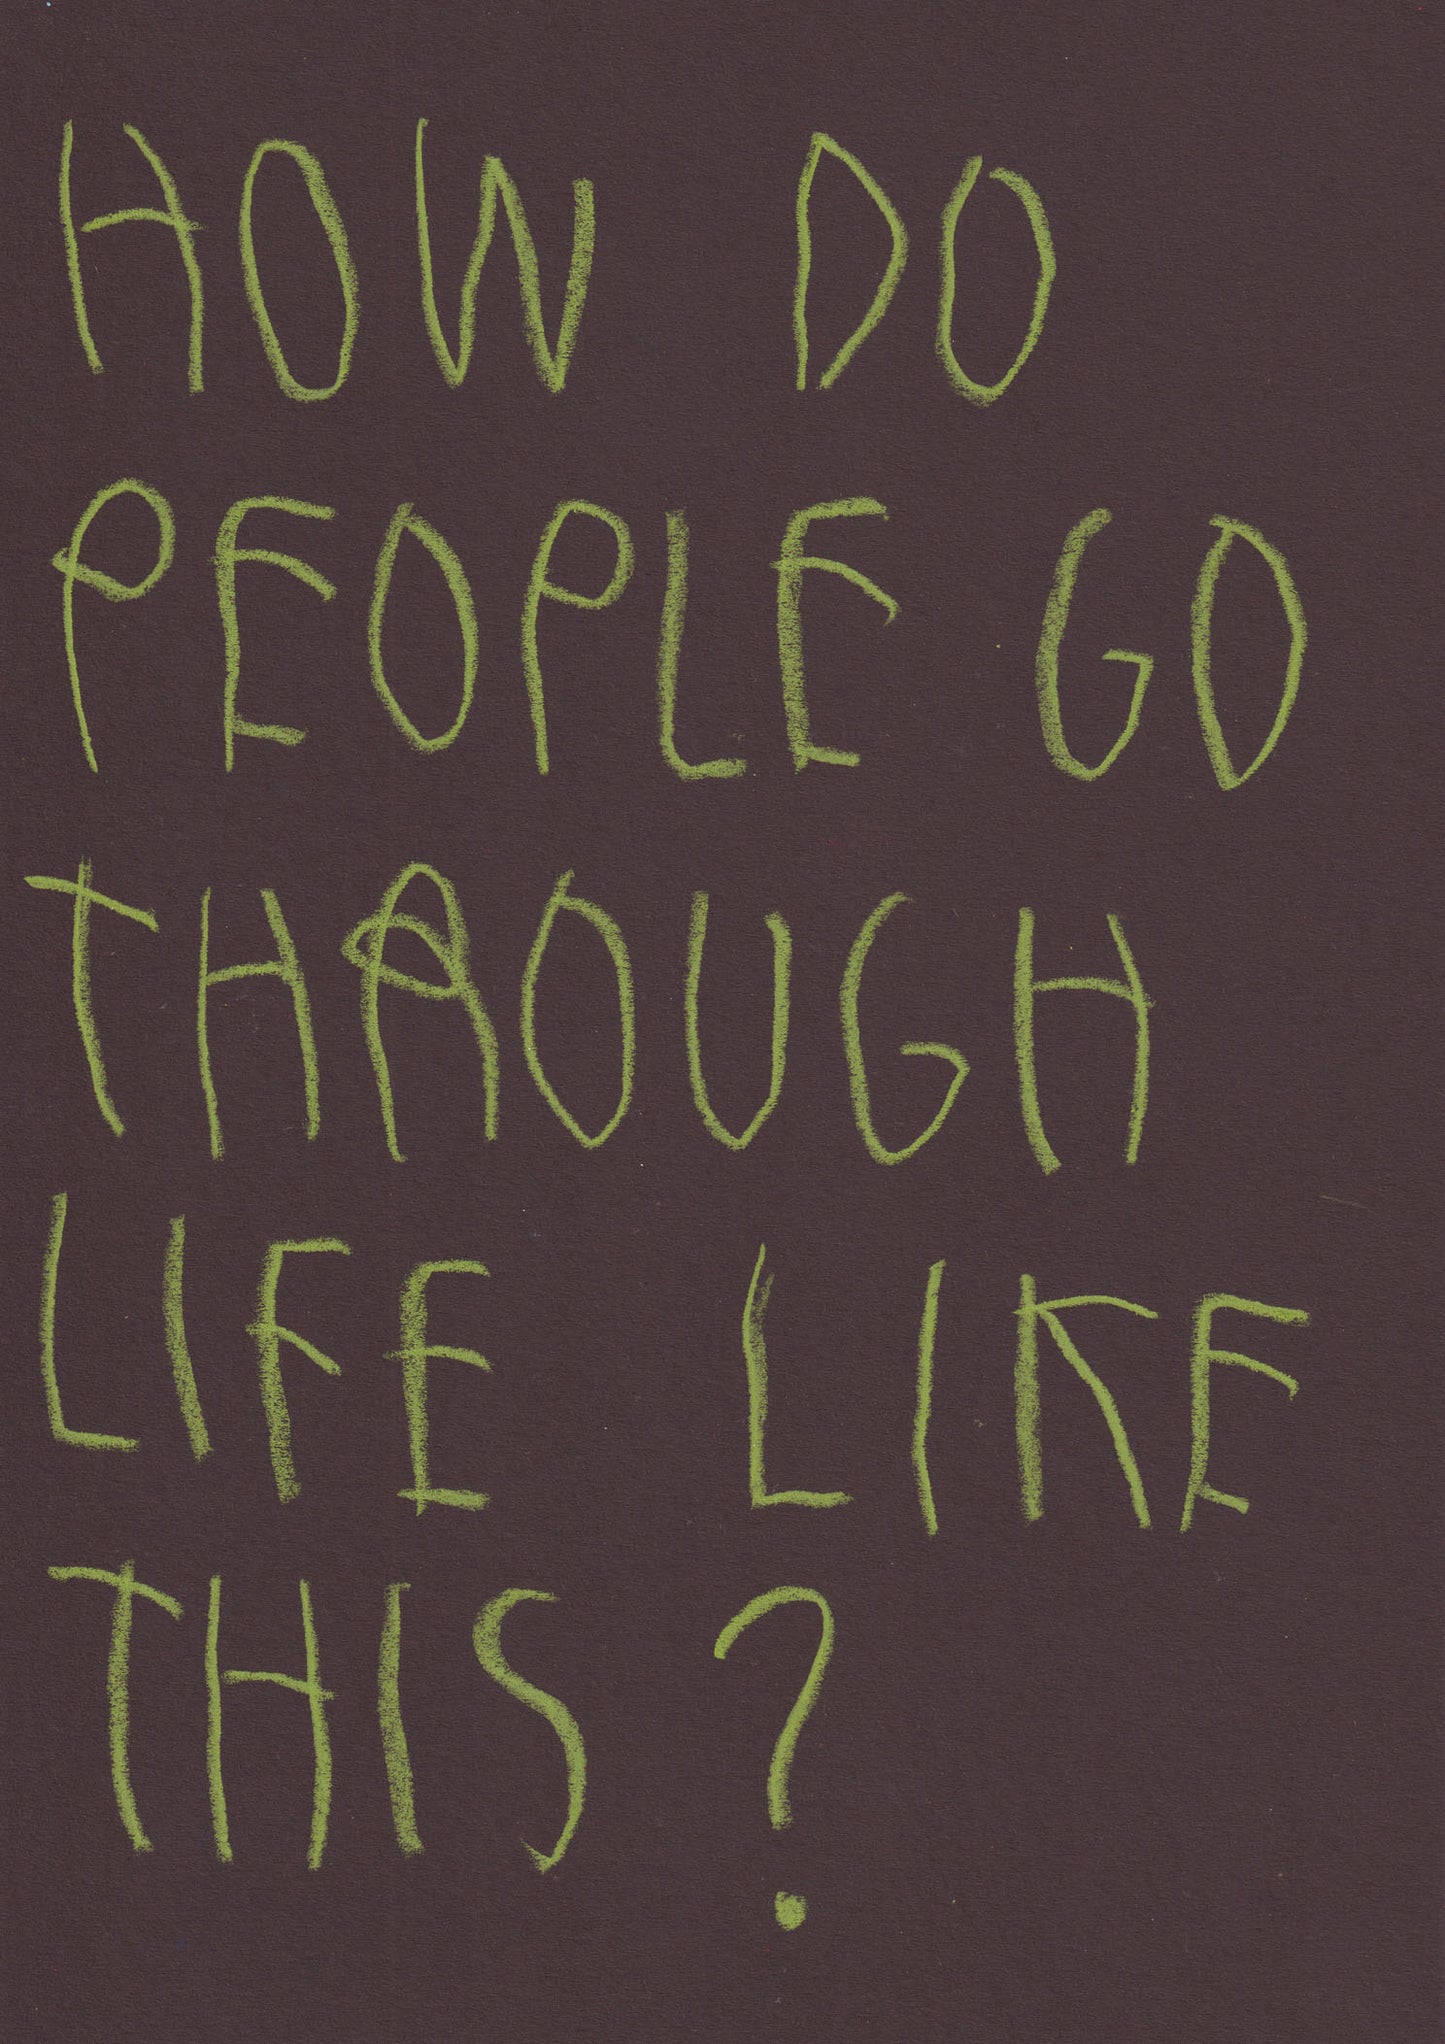 HOW DO
PEOPLE GO
THROUGH
LIFE LIKE
THIS ?